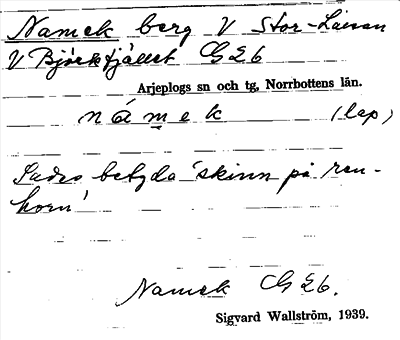 Namek berg V Stor-Laisan
V Björkfjället G26
Arjeplogs sn och tg, Norrbottens län.
námek (lap)
Sades betyda 'skinn på ren-
horn'
Namek G26.
Sigvard Wallström, 1939.